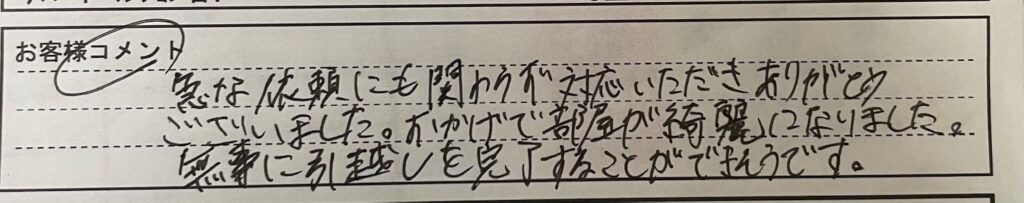 お客様コメント
急な依頼にも関わらず対応いただきありがとう
ございました。おかげで部屋が綺麗になりました。
無事に引越しを完了することができそうです。